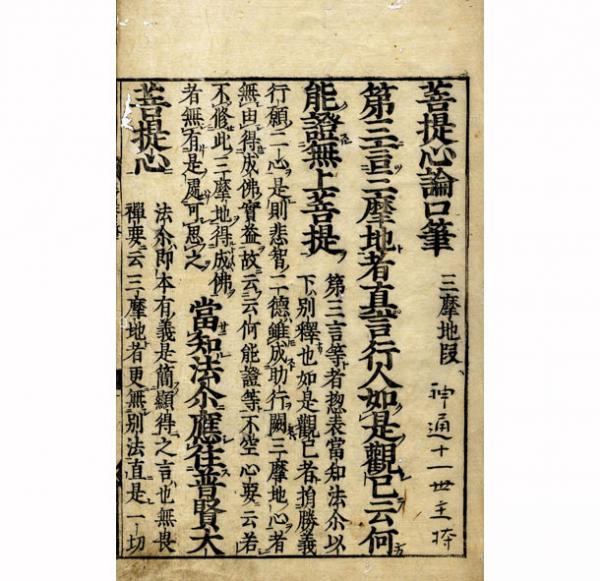 菩提心論口筆 三摩地段 神通十一世主持
第三言三摩地者真言行人如是觀已云何
能證無上菩提
第三言等者揔表當知法尒以
下別釋也如是觀已者指勝義
行願二心是則悲智二德雖成助行闕三摩地心者
無由得成佛實益故云云何能證等不空心要云若
不修此三摩地得成佛
者無有是處可思之
當知法尒應住普賢大
菩提心
法尒即本有義是簡顯得之言也無畏
禪要云三摩地者更無別法直是一切